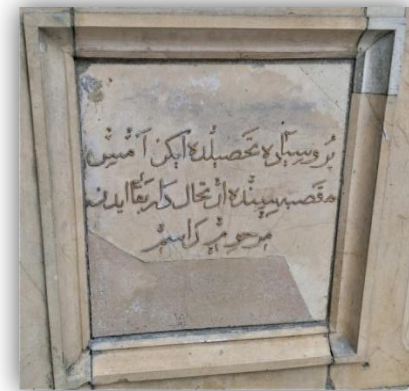 پروسیاده تحصیلده ایکن آمیس
مقصبه‌سینده ارتحال دار بقا ایدن
مرحوم كراسم